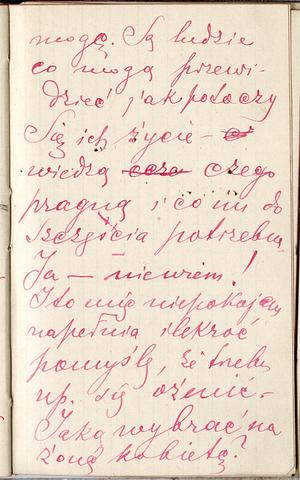 mogę. Są ludzie
co mogą przewi-
dzieć jak potoczy
się ich życie -
wiedzą czego
pragną i co im do
szczęścia potrzebne
Ja — nie wiem!
I to mię niepokojem
napełnia ilekroć
pomyślę, że trzeba
np. się ożenić -
Jaką wybrać na
żonę kobietę?